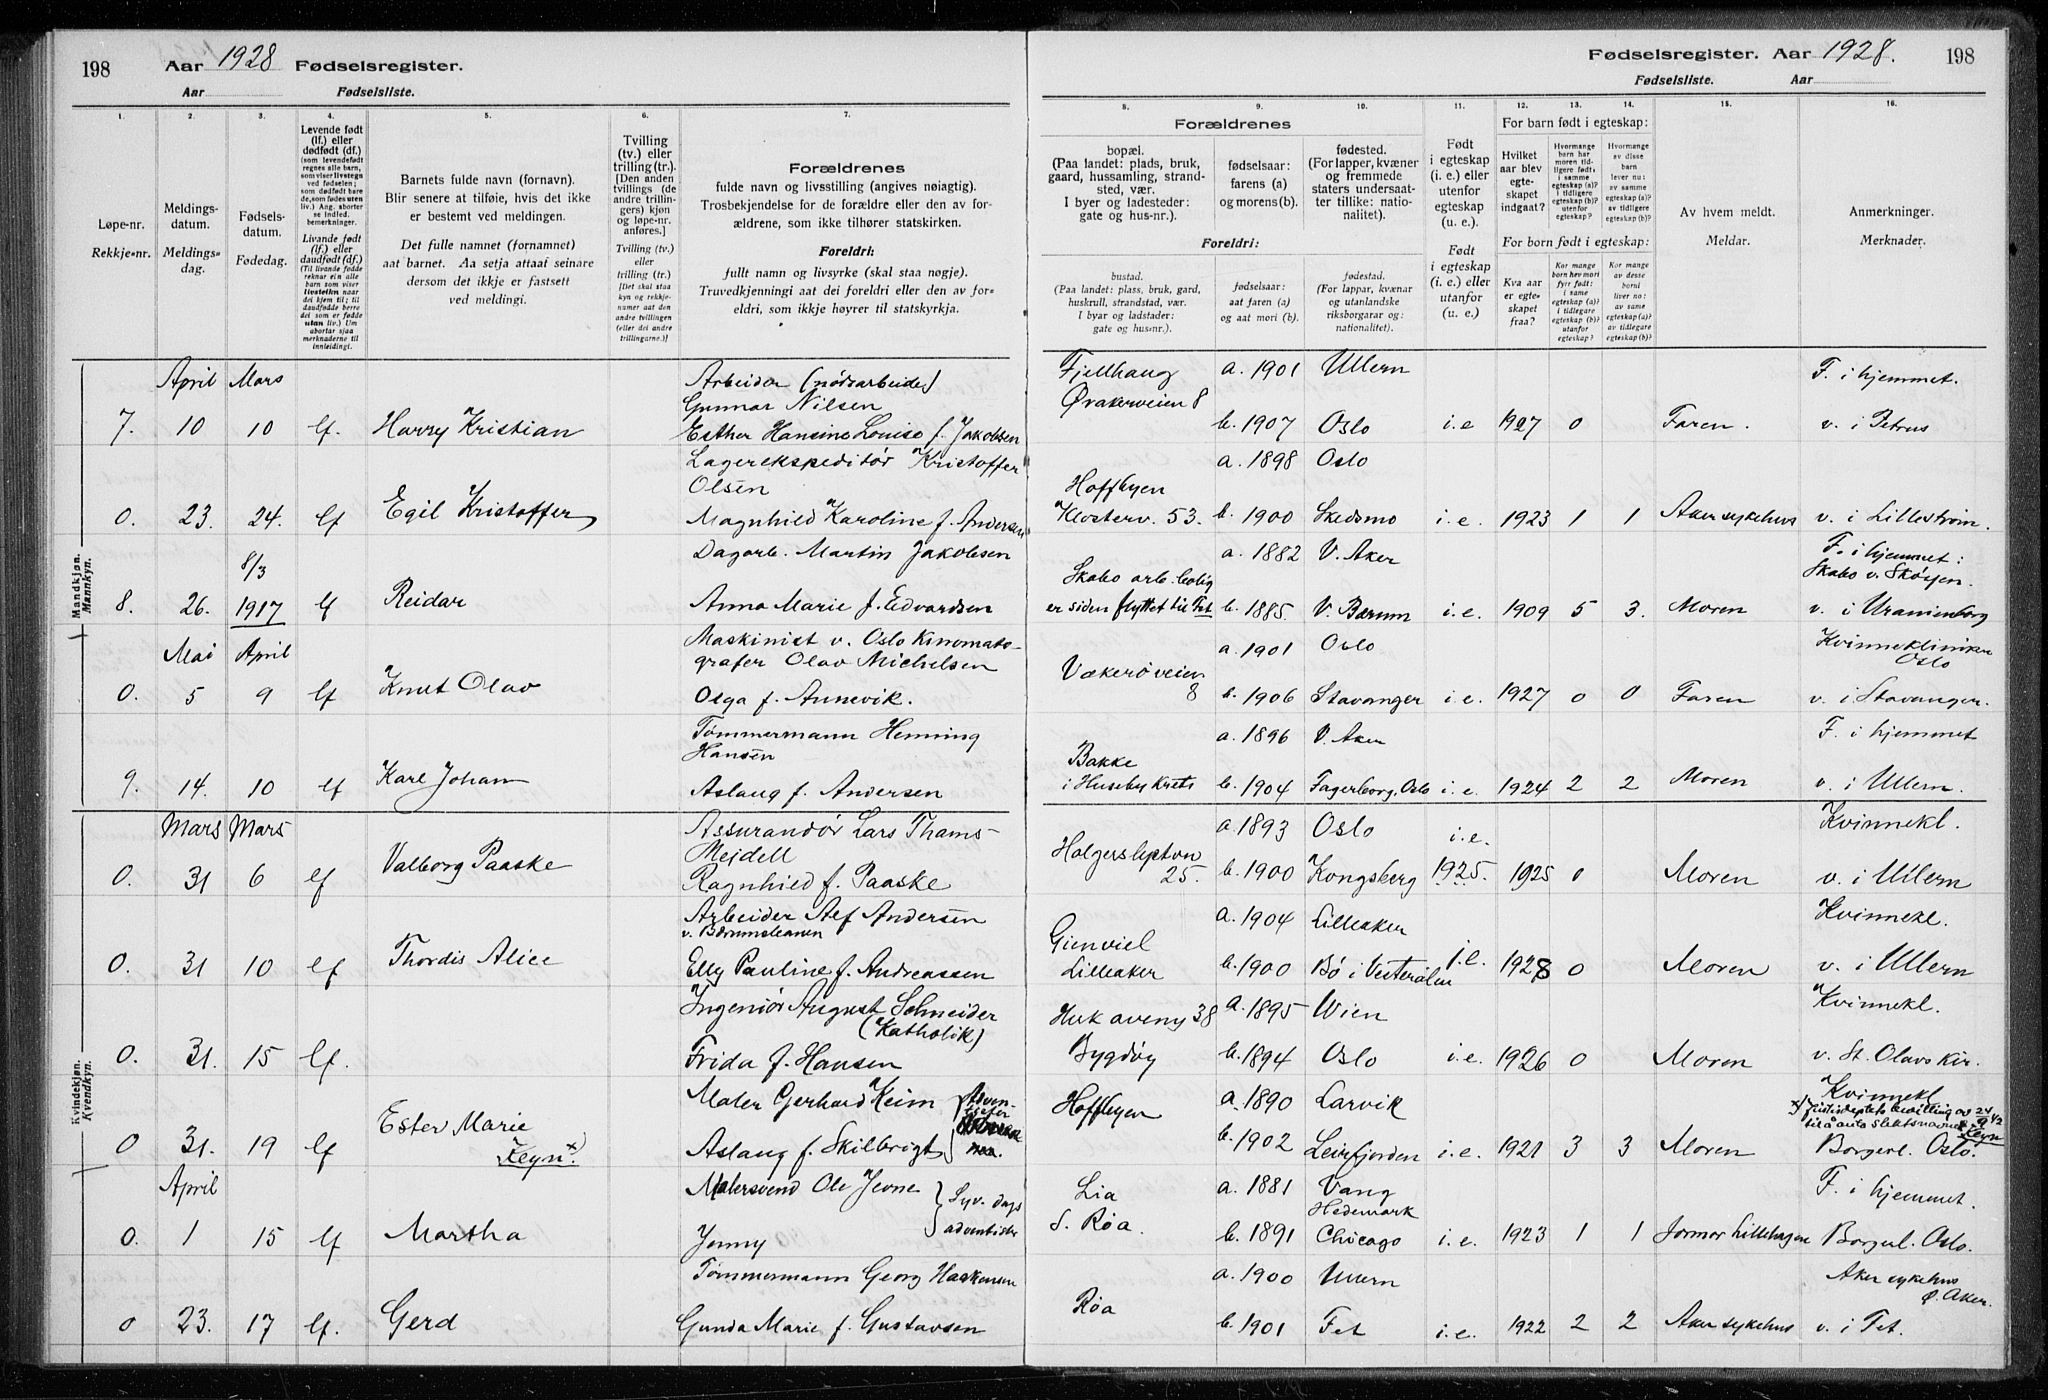 198 Aar 1928 Fødselsregister.
Aar Fødselsliste.
Fødselsregister. Aar 1928. 198
Fødselsliste. Aar
1. 2. 3. 4. 5. 6. 7.
Løpe-nr.
Rekkje-nr.
Meldings-
datum.
Meldings-
dag.
Fødsels-
datum.
Fødedag.
Levende født
(lf.) eller
dødfødt (df.)
Livande født
(lf.) eller
daudfødt (df.)
Barnets fulde navn (fornavn).
Blir senere at tilføie, hvis det ikke
er bestemt ved meldingen.
Det fulle namnet (fornamnet)
aat barnet. Aa setja attaat seinare
dersom det ikkje er fastsett
ved meldingi.
Tvilling
(tv.) eller
trilling (tr.)
[Den anden
tvillings (de
andre trillin-
gers) kjøn
og løpe-nr.
anføres.]
Tvilling (tv.)
eller
trilling (tr.)
[Det skal staa
kyn og rekkje-
numer aat den
andre tvillingen
(eller dei andre
trillingarne.)]
Forældrenes
fulde navn og livsstilling (angives nøiagtig).
Trosbekjendelse for de forældre eller den av for-
ældrene, som ikke tilhører statskirken.
Foreldri:
fullt namn og livsyrke (skal staa nøgje).
Truvedkjenningi aat dei foreldri eller den av for-
eldri, som ikkje høyrer til statskyrkja.
8. 9. 10. 11. 12. 13. 14. 15. 16.
Forældrenes
bopæl.
(Paa landet: plads, bruk,
gaard, hussamling, strand-
sted, vær.
I byer og ladesteder:
gate og hus-nr.).
fødselsaar:
farens (a)
og morens (b).
fødested.
(For lapper, kvæner
og fremmede
staters undersaat-
ter tillike: natio-
nalitet).
Foreldri:
bustad.
(Paa landet: plass, bruk, gard,
huskrull, strandstad, vær.
I byar og ladstader:
gate og hus-nr.).
fødselsaar:
aat faren (a)
og aat mori (b).
fødestad.
(For lappar, kvænar
og utanlandske
riksborgarar og:
nationalitet).
Født
i egteskap
(i. e.) eller
utenfor
egteskap
(u. e.).
Født
i egteskap
(i. e.) eller
utanfor
(u. e.).
For barn født i egteskap:
Hvilket
aar blev
egte-
skapet
indgaat?
Hvormange
barn har
moren tid-
ligere født:
i samme
egteskap (a)?
i tidligere
egteskap (b)?
utenfor
egteskap?
Hvormange
av disse
barn
lever nu:
av samme
egteskap (a)?
av tidligere
egteskap (b)?
For born født i egteskap:
Kva aar
er egte-
skapet
fraa?
Kor mange
born hev mori
fyrr født:
i same
egteskap (a)?
i tidlegare
egteskap (b)?
utanfor
egteskap?
Kor mange
av desse
borni
liver no:
av same
egteskap (a)?
av tidlegare
egteskap (b)?
Av hvem meldt.
Meldar.
Anmerkninger.
Merknader.
Mandkjøn.
Mannkyn.
April Mars
7. 10 10 lf. Harry Kristian
Arbeider (nødsarbeider)
Gunnar Nilsen
Esther Hansine Louise f. Jakobsen
Fjellhaug
Øvakerveien 8
a. 1901 Ullern
b. 1907 Oslo i.e 1927 0 Faren.
F. i hjemmet.
v. i Petrus
0. 23. 24. lf Egil Kristoffer
Lagerekspeditør Kristoffer
Olsen
Magnhild Karoline f. Andersen
Hoffbyen
Klosterv. 53.
a. 1898 Oslo
b. 1900 Skedsmo i.e. 1923 1 1 Aker sykehus v. i Lillestrøm.
8/3
8. 26. 1917 lf Reidar
Dagarb. Martin Jakobsen
Anna Marie f. Edvardsen
Skabo arb. bolig
er siden flyttet til Fet
a. 1882 V. Aker
b. 1885. V. Bærum i.e. 1909 5 3. Moren
F. i hjemmet:
Skabo v. Skøyen.
v. i Uranienborg
Mai April
0. 5 9 lf Knut Olav
Maskinist v. Oslo Kinomato-
grafer Olav Michelsen
Olga f. Annevik.
Vækerøveien
8
a. 1901 Oslo
b. 1906 Stavanger i.e. 1927 0 0 Faren
Kvinneklinikken
Oslo
v. i Stavanger.
9. 14. 10 lf Karl Johan
Tømmermann Henning
Hansen
Aslaug f. Andersen
Bakke
i Huseby Krets
a. 1896 V. Aker
b. 1904 Fagerborg, Oslo i.e. 1924 2 2 Moren
F. i hjemmet
v. i Ullern.
Kvindekjøn.
Kvendkyn.
Mars Mars
0. 31 6 lf Valborg Paaske
Assurandør Lars Thams-
Meidell
Ragnhild f. Paaske
Holgerslystvn
25.
a. 1893 Oslo i.e.
b. 1900 Kongsberg 1925. 1925 0 Moren
Kvinnekl.
v. i Ullern
0. 31 10 lf Thordis Alice
Arbeider Alf Andersen
v. Bærumsbanen
Elly Pauline f. Andreassen
Lilleaker
a. 1904 Lilleaker
b. 1900 Bø i Vesterålen i.e. 1928 0 Moren
Kvinnekl.
v. i Ullern
0. 31. 15 lf.
Ingeniør August Schneider
(Katholik)
Frida f. Hansen
Huk aveny 38
Bygdøy
a. 1895 Wien
b. 1894 Oslo i.e. 1926 0 Moren
Kvinnekl.
v. St. Olavs Kir.
0 31. 19 lf Ester Marie
Keyn x)
Maler Gerhard Keim
Aslaug f. Skilbrigt
Hoffbyen
a. 1890 Larvik
b. 1902 Leirfjorden i.e. 1921 3 3 Moren
Kvinnekl
x) Justisdeptets bevilling av 24/9 42
til å anta slektsnavnet
Keyn
Borgerl. Oslo.
April
0. 1 15 lf Martha
Malersvend Ole Jevne
Jenny
Syv. dags
adventister
Lia
S. Røa.
a. 1881 Vang
Hedemark
b. 1891 Chicago i.e. 1923 1 1 Jormor Lillehagen
F. i hjemmet.
Borgerl. Oslo.
0 23. 17 lf. Gerd
Tømmermann Georg Haakensen
Gunda Marie f. Gustavsen
Røa
a. 1900 Ullern
b. 1901 Fet i.e. 1922 2 2 Aker sykehus
Aker sykehus
Ø. Aker.
v. i Fet.